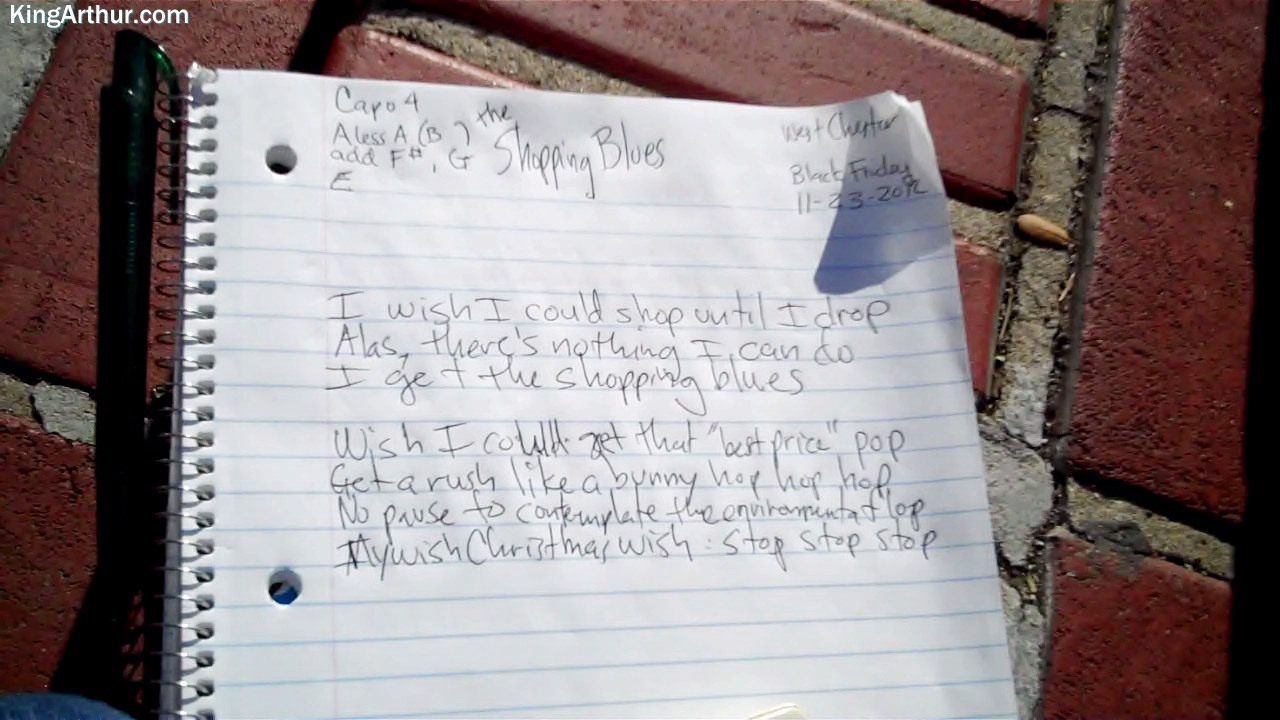 KingArthur.com
Capo 4
Aless A (B )
add F#, G
E
the
Shopping Blues
West Chester
Black Friday
11-23-2012
I wish I could shop until I drop
Alas, there's nothing I can do
I get the shopping blues
Wish I could get that "best price" pop
Get a rush like a bunny hop hop hop
No pause to contemplate the environmental flop
My wish Christmas wish: stop stop stop